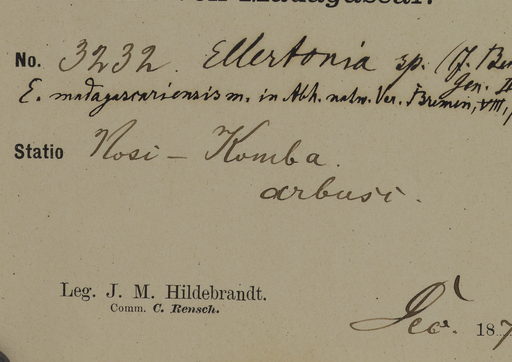 Madagascar.
No. 3232. Ellertonia sp. (J. Ben
Gen. II
E. madagascariensis m. in Abh. natw. Ver. Bremen, VIII,
Statio Nosi - Komba.
arbusc.
Leg. J. M. Hildebrandt.
Comm. C. Rensch.
Dec. 187